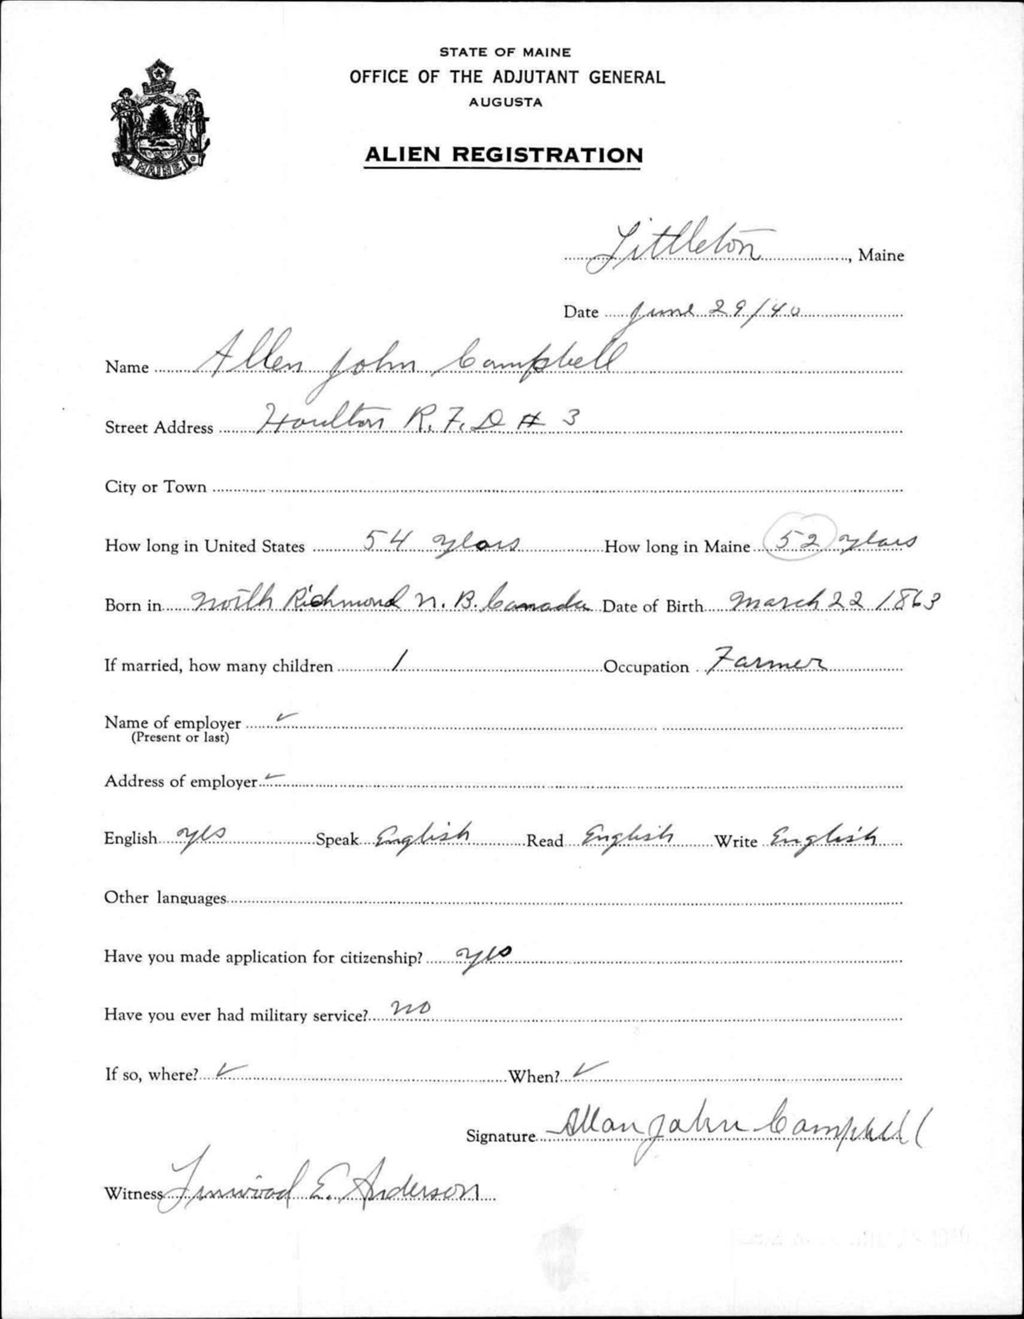 STATE OF MAINE
OFFICE OF THE ADJUTANT GENERAL
AUGUSTA
ALIEN REGISTRATION
MAINE
Littleton, Maine
Date June 29/40
Name Allen John Campbell
Street Address Houlton R.F.D # 3
City or Town
How long in United States 54 years How long in Maine 52 years
Born in North Richmond N.B. Canada Date of Birth March 22 1863
If married, how many children 1 Occupation Farmer
Name of employer ✓
(Present or last)
Address of employer ✓
English yes Speak English Read English Write English
Other languages
Have you made application for citizenship? yes
Have you ever had military service? no
If so, where? ✓ When? ✓
Signature Allan John Campbell
Witness Linwood E. Anderson